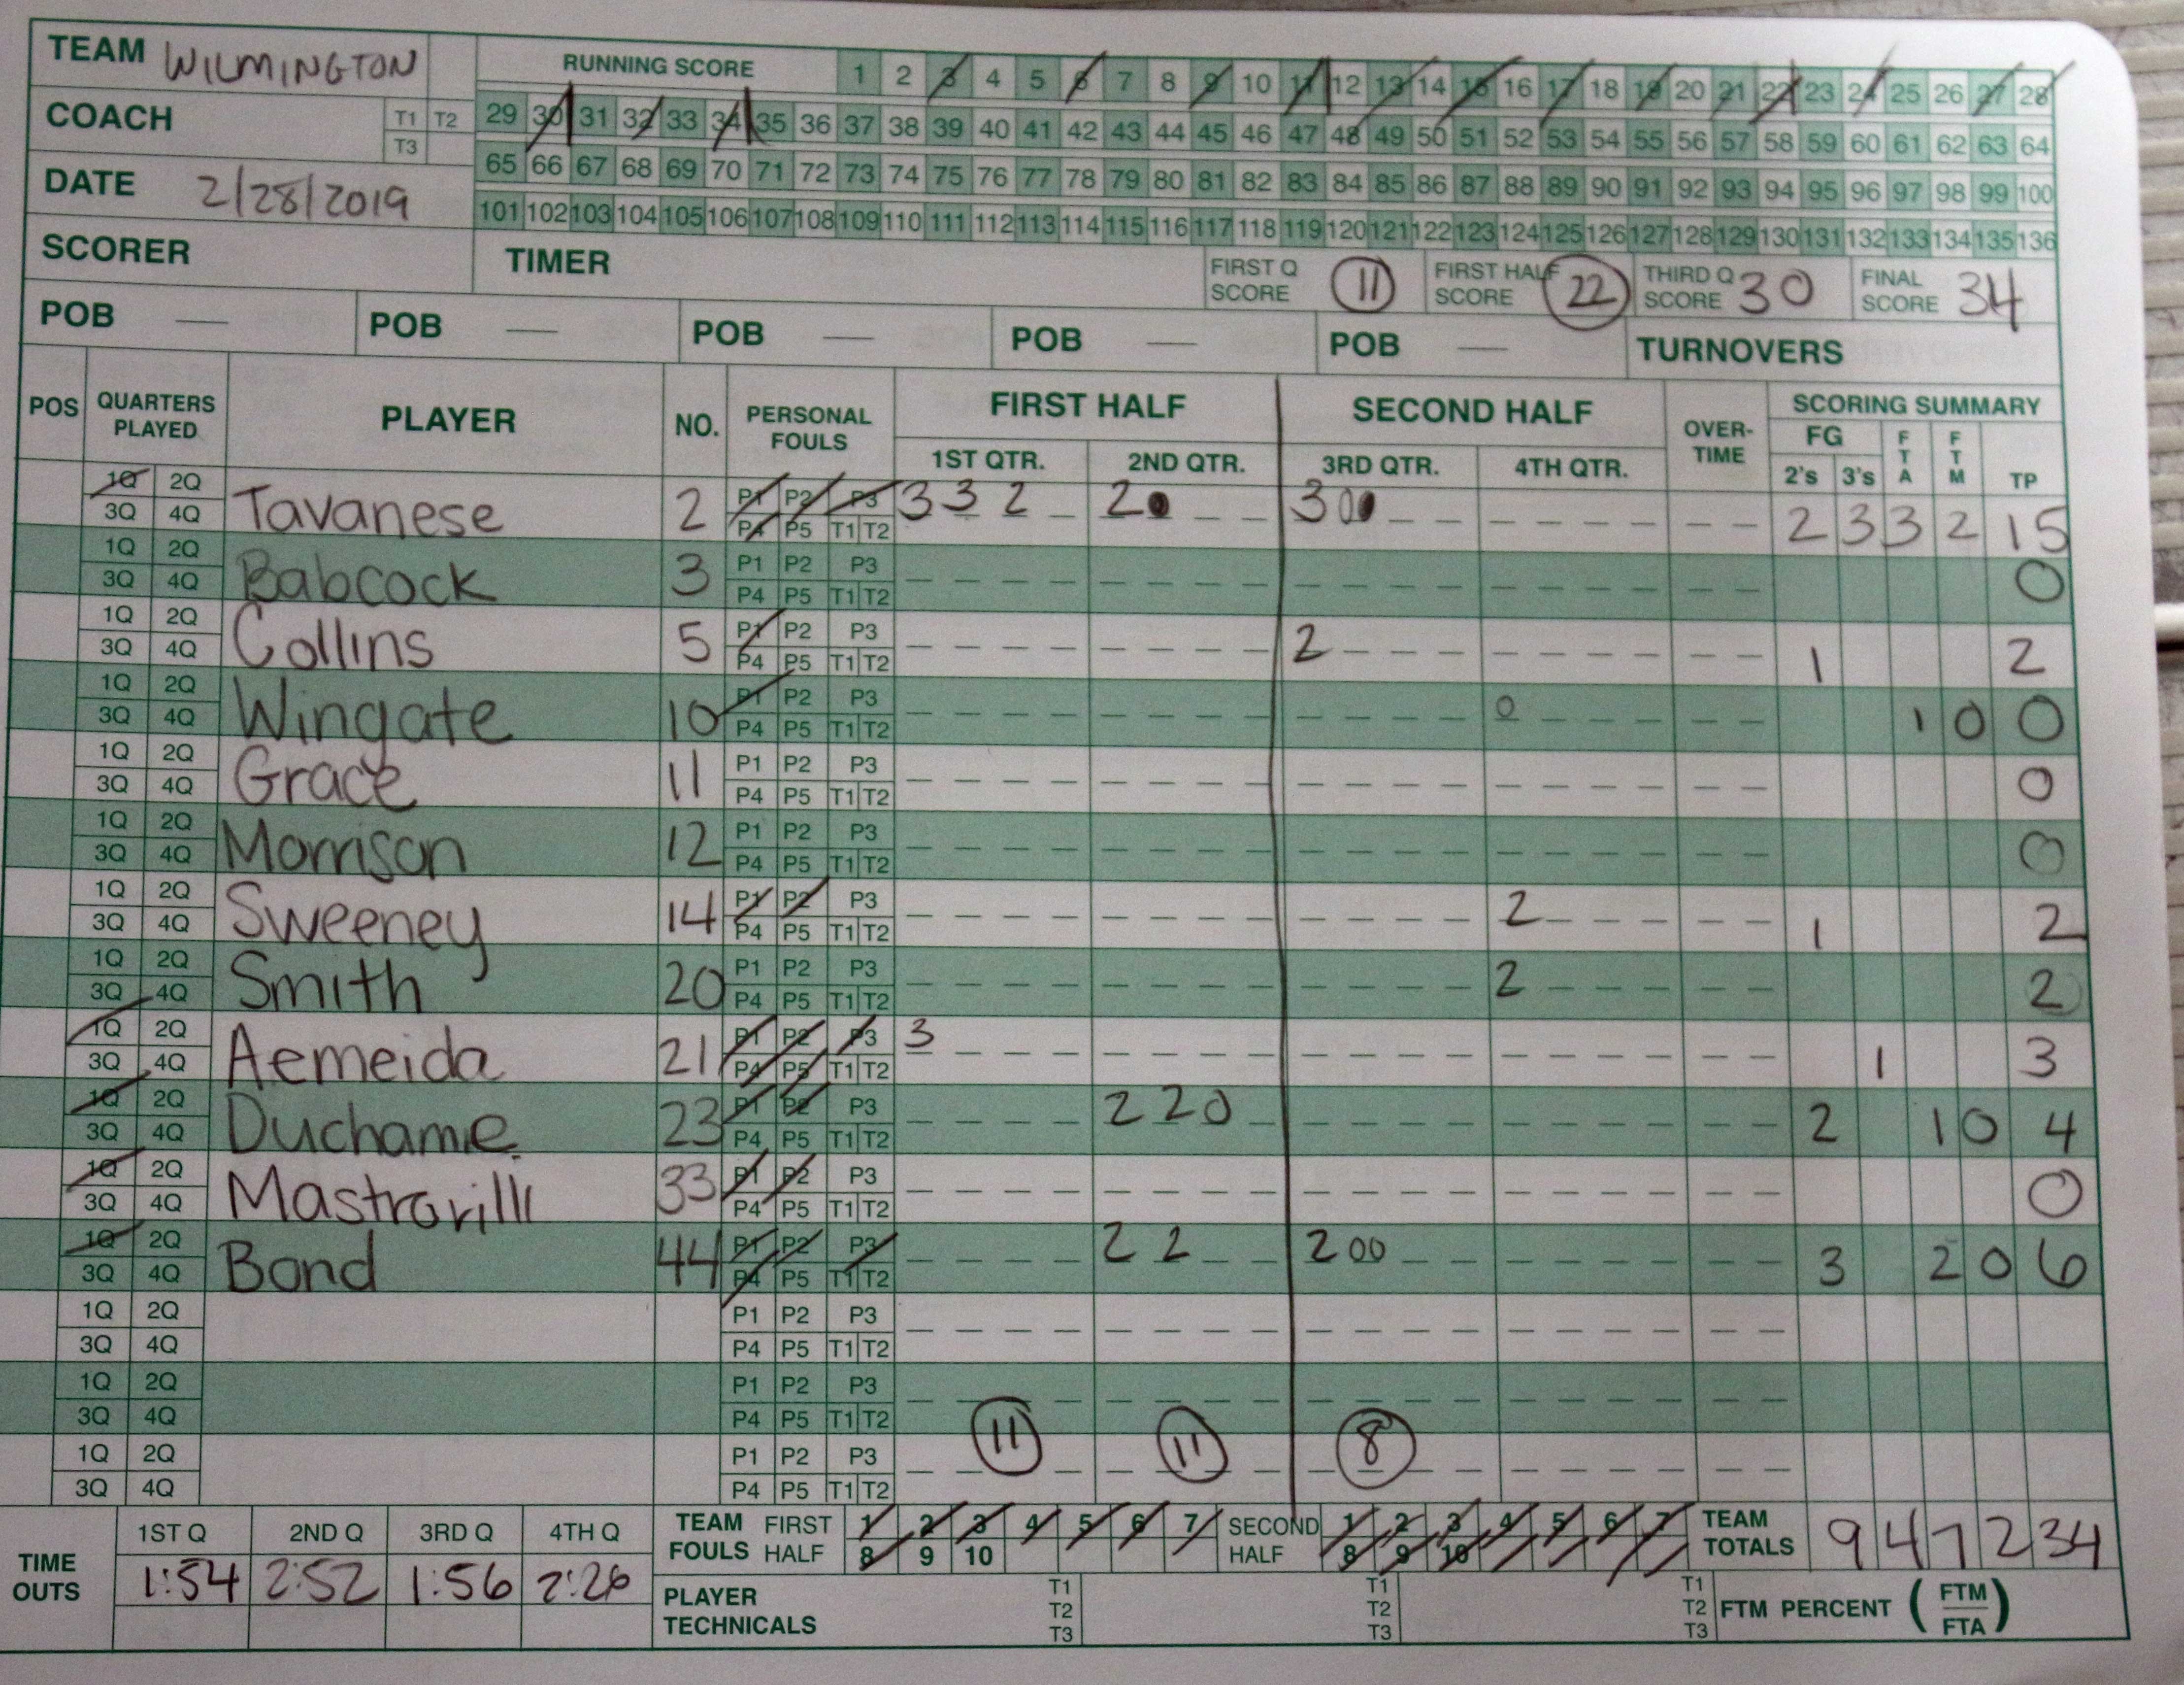 TEAM WILMINGTON
COACH T1 T2 T3
DATE 2/28/2019
SCORER
RUNNING SCORE 1 2 3 4 5 6 7 8 9 10 11 12 13 14 15 16 17 18 19 20 21 22 23 24 25 26 27 28
29 30 31 32 33 34 35 36 37 38 39 40 41 42 43 44 45 46 47 48 49 50 51 52 53 54 55 56 57 58 59 60 61 62 63 64
65 66 67 68 69 70 71 72 73 74 75 76 77 78 79 80 81 82 83 84 85 86 87 88 89 90 91 92 93 94 95 96 97 98 99 100
101 102 103 104 105 106 107 108 109 110 111 112 113 114 115 116 117 118 119 120 121 122 123 124 125 126 127 128 129 130 131 132 133 134 135 136
TIMER FIRST Q SCORE 11 FIRST HALF SCORE 22 THIRD Q SCORE 30 FINAL SCORE 34
POB — POB — POB — POB — POB — TURNOVERS
POS QUARTERS PLAYED PLAYER NO. PERSONAL FOULS FIRST HALF SECOND HALF OVER-TIME SCORING SUMMARY
1ST QTR. 2ND QTR. 3RD QTR. 4TH QTR. FG 2's 3's FTA FTM TP
1Q 2Q 3Q 4Q Tavanese 2 P1 P2 P3 P4 P5 T1 T2 3 3 2 2 3 0 2 3 3 2 15
1Q 2Q 3Q 4Q Babcock 3 P1 P2 P3 P4 P5 T1 T2 0
1Q 2Q 3Q 4Q Collins 5 P1 P2 P3 P4 P5 T1 T2 2 1 2
1Q 2Q 3Q 4Q Wingate 10 P1 P2 P3 P4 P5 T1 T2 0 1 0 0
1Q 2Q 3Q 4Q Grace 11 P1 P2 P3 P4 P5 T1 T2 0
1Q 2Q 3Q 4Q Morrison 12 P1 P2 P3 P4 P5 T1 T2 0
1Q 2Q 3Q 4Q Sweeney 14 P1 P2 P3 P4 P5 T1 T2 2 1 2
1Q 2Q 3Q 4Q Smith 20 P1 P2 P3 P4 P5 T1 T2 2 2
1Q 2Q 3Q 4Q Aemeida 21 P1 P2 P3 P4 P5 T1 T2 3 1 3
1Q 2Q 3Q 4Q Duchame 23 P1 P2 P3 P4 P5 T1 T2 2 2 0 2 1 0 4
1Q 2Q 3Q 4Q Mastrovilli 33 P1 P2 P3 P4 P5 T1 T2 0
1Q 2Q 3Q 4Q Bond 44 P1 P2 P3 P4 P5 T1 T2 2 2 2 0 0 3 2 0 6
1Q 2Q 3Q 4Q P1 P2 P3 P4 P5 T1 T2
1Q 2Q 3Q 4Q P1 P2 P3 P4 P5 T1 T2
1Q 2Q 3Q 4Q P1 P2 P3 P4 P5 T1 T2 11 11 8
TIME OUTS 1ST Q 2ND Q 3RD Q 4TH Q
1:54 2:52 1:56 2:26
TEAM FOULS FIRST HALF 1 2 3 4 5 6 7 8 9 10 SECOND HALF 1 2 3 4 5 6 7 8 9 10 TEAM TOTALS 9 4 7 2 34
PLAYER TECHNICALS T1 T2 T3 T1 T2 T3 T1 T2 T3 FTM PERCENT (FTM/FTA)